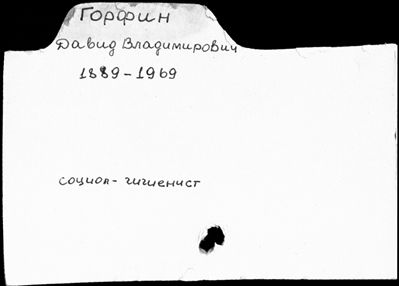 Горфин
Давид Владимирович
1889-1969
социал-гигиенист